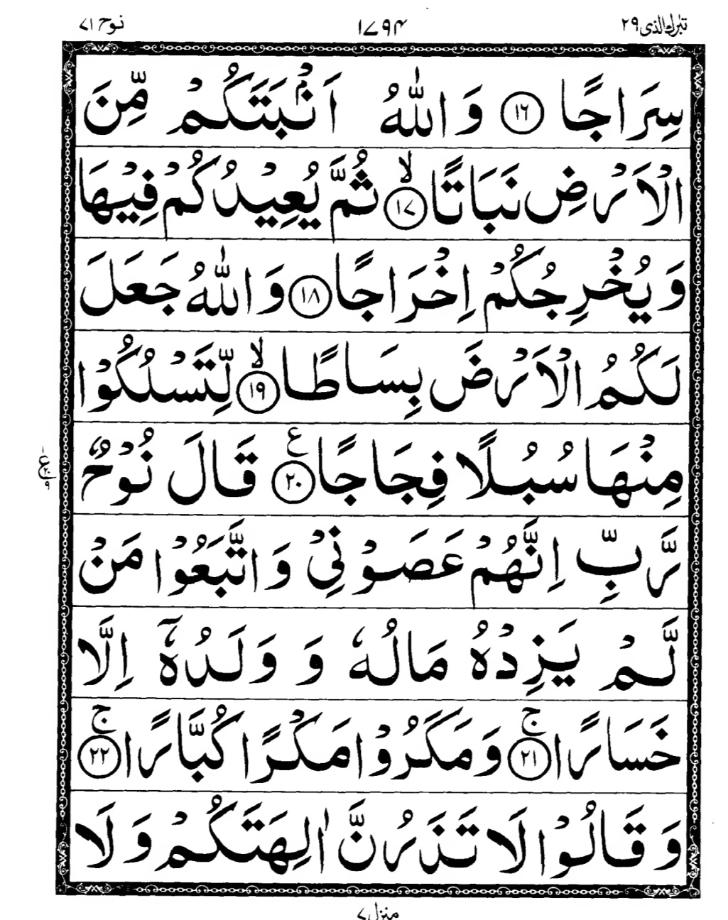 تبٰرك الذی ۲۹ ۱۷۹۴ نوح ۷۱
سِرَاجًا ۝۱۶ وَ اللّٰهُ اَنْۢبَتَكُمْ مِّنَ
الْاَرْضِ نَبَاتًا ۙ۝۱۷ ثُمَّ يُعِيْدُكُمْ فِيْهَا
وَ يُخْرِجُكُمْ اِخْرَاجًا ۝۱۸ وَ اللّٰهُ جَعَلَ
لَكُمُ الْاَرْضَ بِسَاطًا ۙ۝۱۹ لِّتَسْلُكُوْا
مِنْهَا سُبُلًا فِجَاجًا ۝۲۰ع قَالَ نُوْحٌ
رَّبِّ اِنَّهُمْ عَصَوْنِيْ وَ اتَّبَعُوْا مَنْ
لَّمْ يَزِدْهُ مَالُهٗ وَ وَلَدُهٗۤ اِلَّا
خَسَارًا ۚ۝۲۱ وَ مَكَرُوْا مَكْرًا كُبَّارًا ۚ۝۲۲
وَ قَالُوْا لَا تَذَرُنَّ اٰلِهَتَكُمْ وَ لَا
منزل ۷